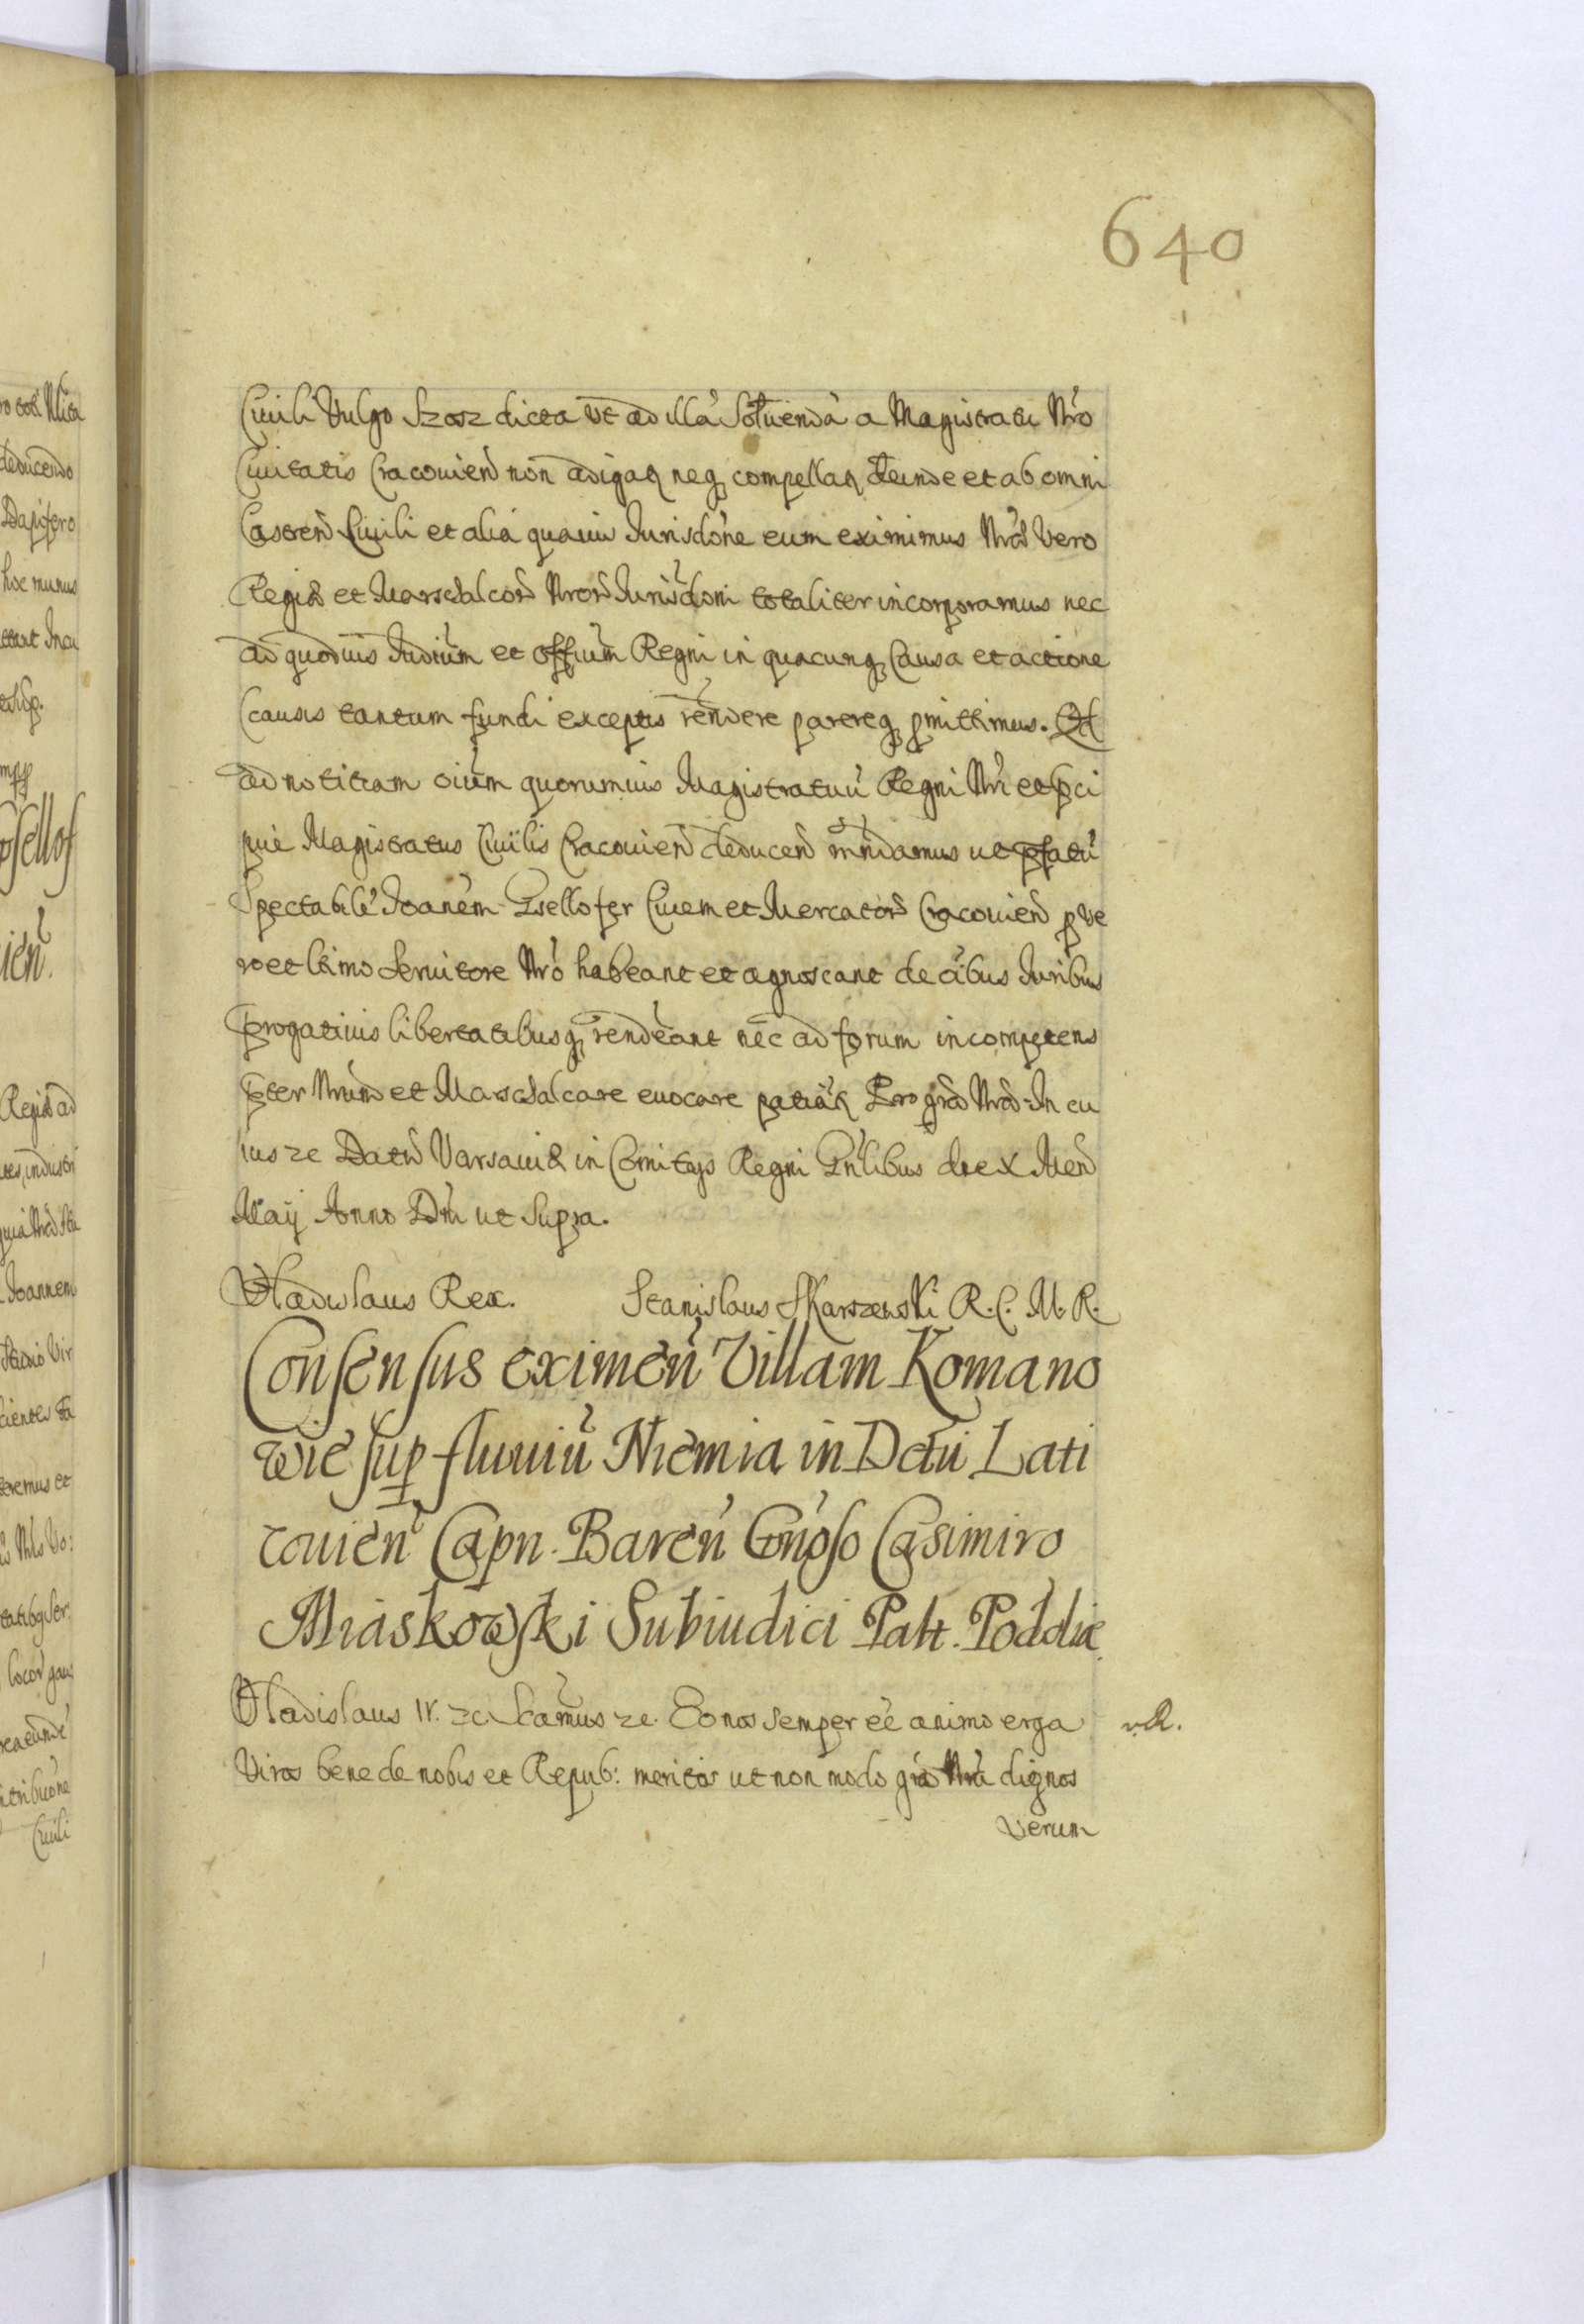 640
Ciuili Vulgo Szosz dicta Ut ad illá Soluendá a Magistratu Nro
Ciuitatis Cracouien non adigaʀ neq compellaʀ deinde et ab omni
Castren Ciuili et aliá quauis Jurisdóne eum eximimus Nrӕ Vero
Regiӕ et Marschalcor Nror Jurisdoni totaliter incorporamus nec
ad quoduis Judium et offium Regni in quacunq Causa et actione
(causis tantum fundi exceptis rendere parereq pmittimus. Qd
ad notitiam oium quorumuis Magistratuu Regni Nri et pci
pué Magistratus Ciuilis Cracouien deducen mndamus ut pfatu
Spectabilé Joaném Gsellofer Ciuem et Mercator Cracouien p Ve
ro et ltimo Seruitore Nro habeant et agnoscant de oibus Juribus
progatiuis libertatibusq rendeant nec ad forum incompetens
pter Nrum et Marschalcare euocare patiáʀ Pro gra Nra In cu
ius ze Datu Varsauiӕ in Comitys Regni Gnlibus die X Men
Maij Anno Dni ut Supra.
Vladislaus Rex. Stanislaus Skarszewski R. C. M. R.
Consensus eximen Villam Komano
wie sup fluuiu Niemia in Dctu Lati
couien Capn. Baren Gnoso Casimiro
Miaskowski Subiudici Palt. Poddiӕ
Vladislaus IV. zc. Scamus ze. Eo nos Semper ee animo erga
r. R.
Viros bene de nobis et Repub: meritos ut non modo gra Nra dignos
Verum